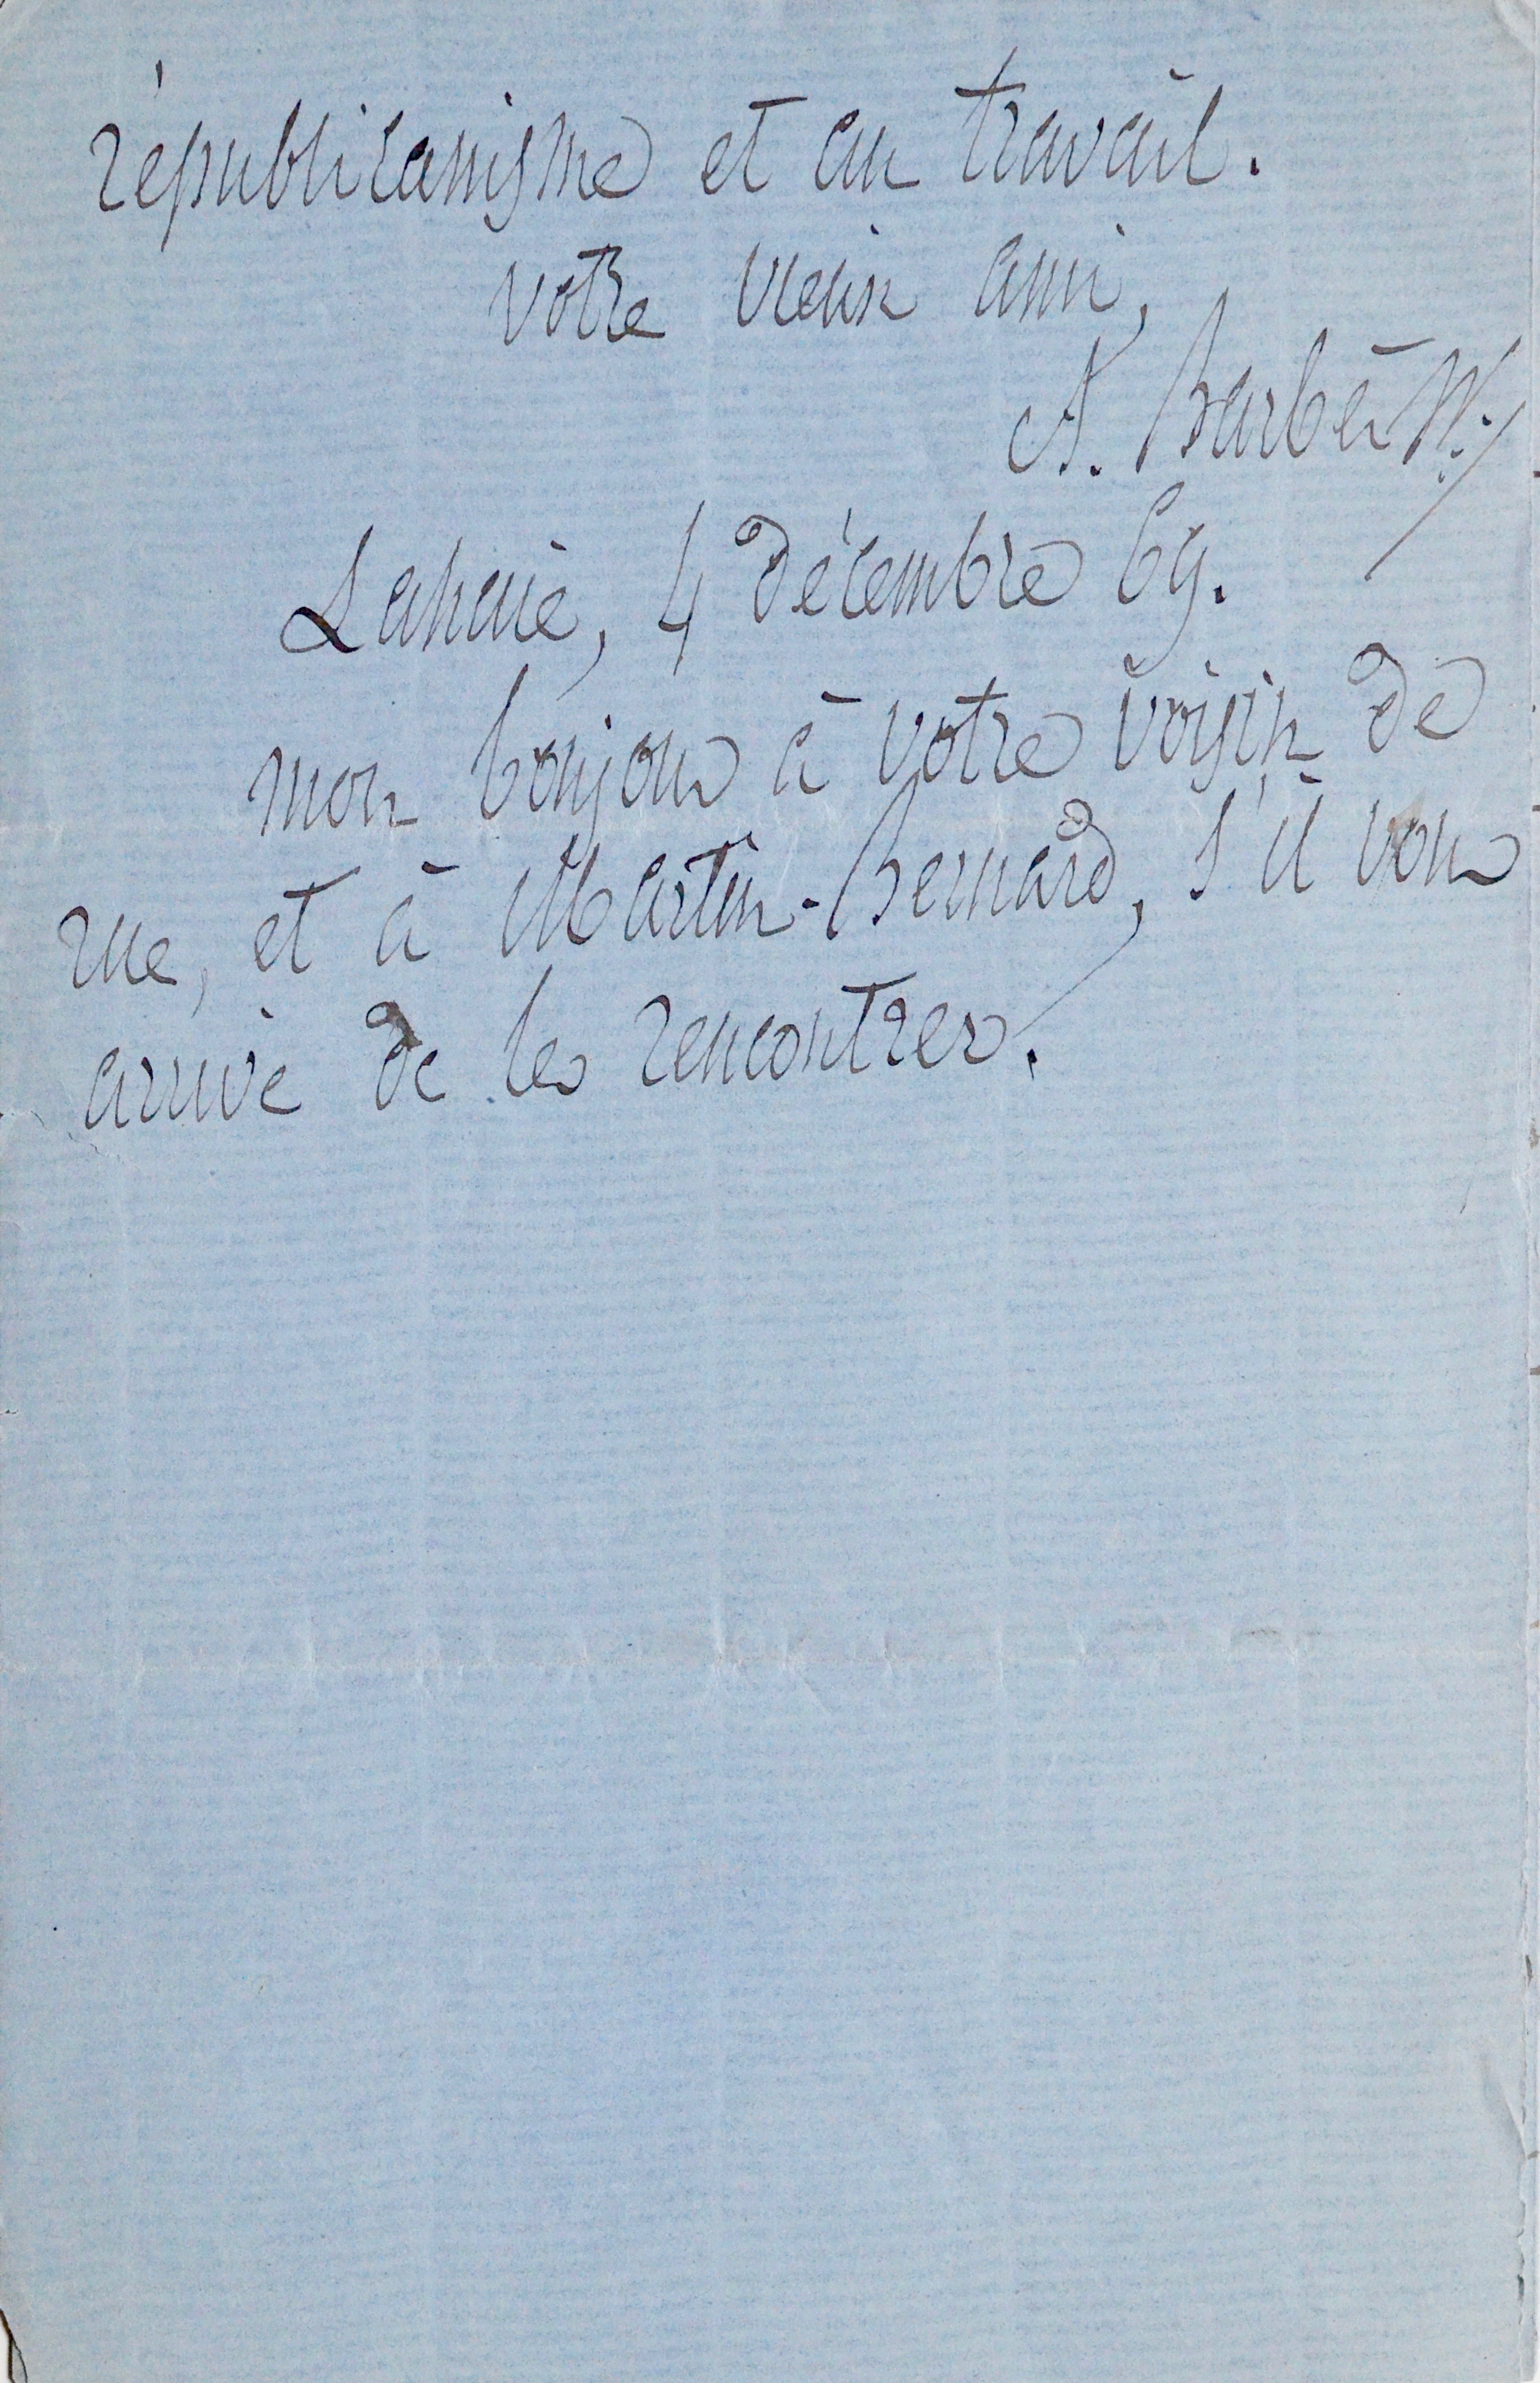 républicanisme et au travail.
votre vieux ami,
A. Barbès
Lahaie, 4 décembre 69.
mon bonjour à votre voisin de
rue, et à Martin-Bernard, s'il vous
arrive de les rencontrer.